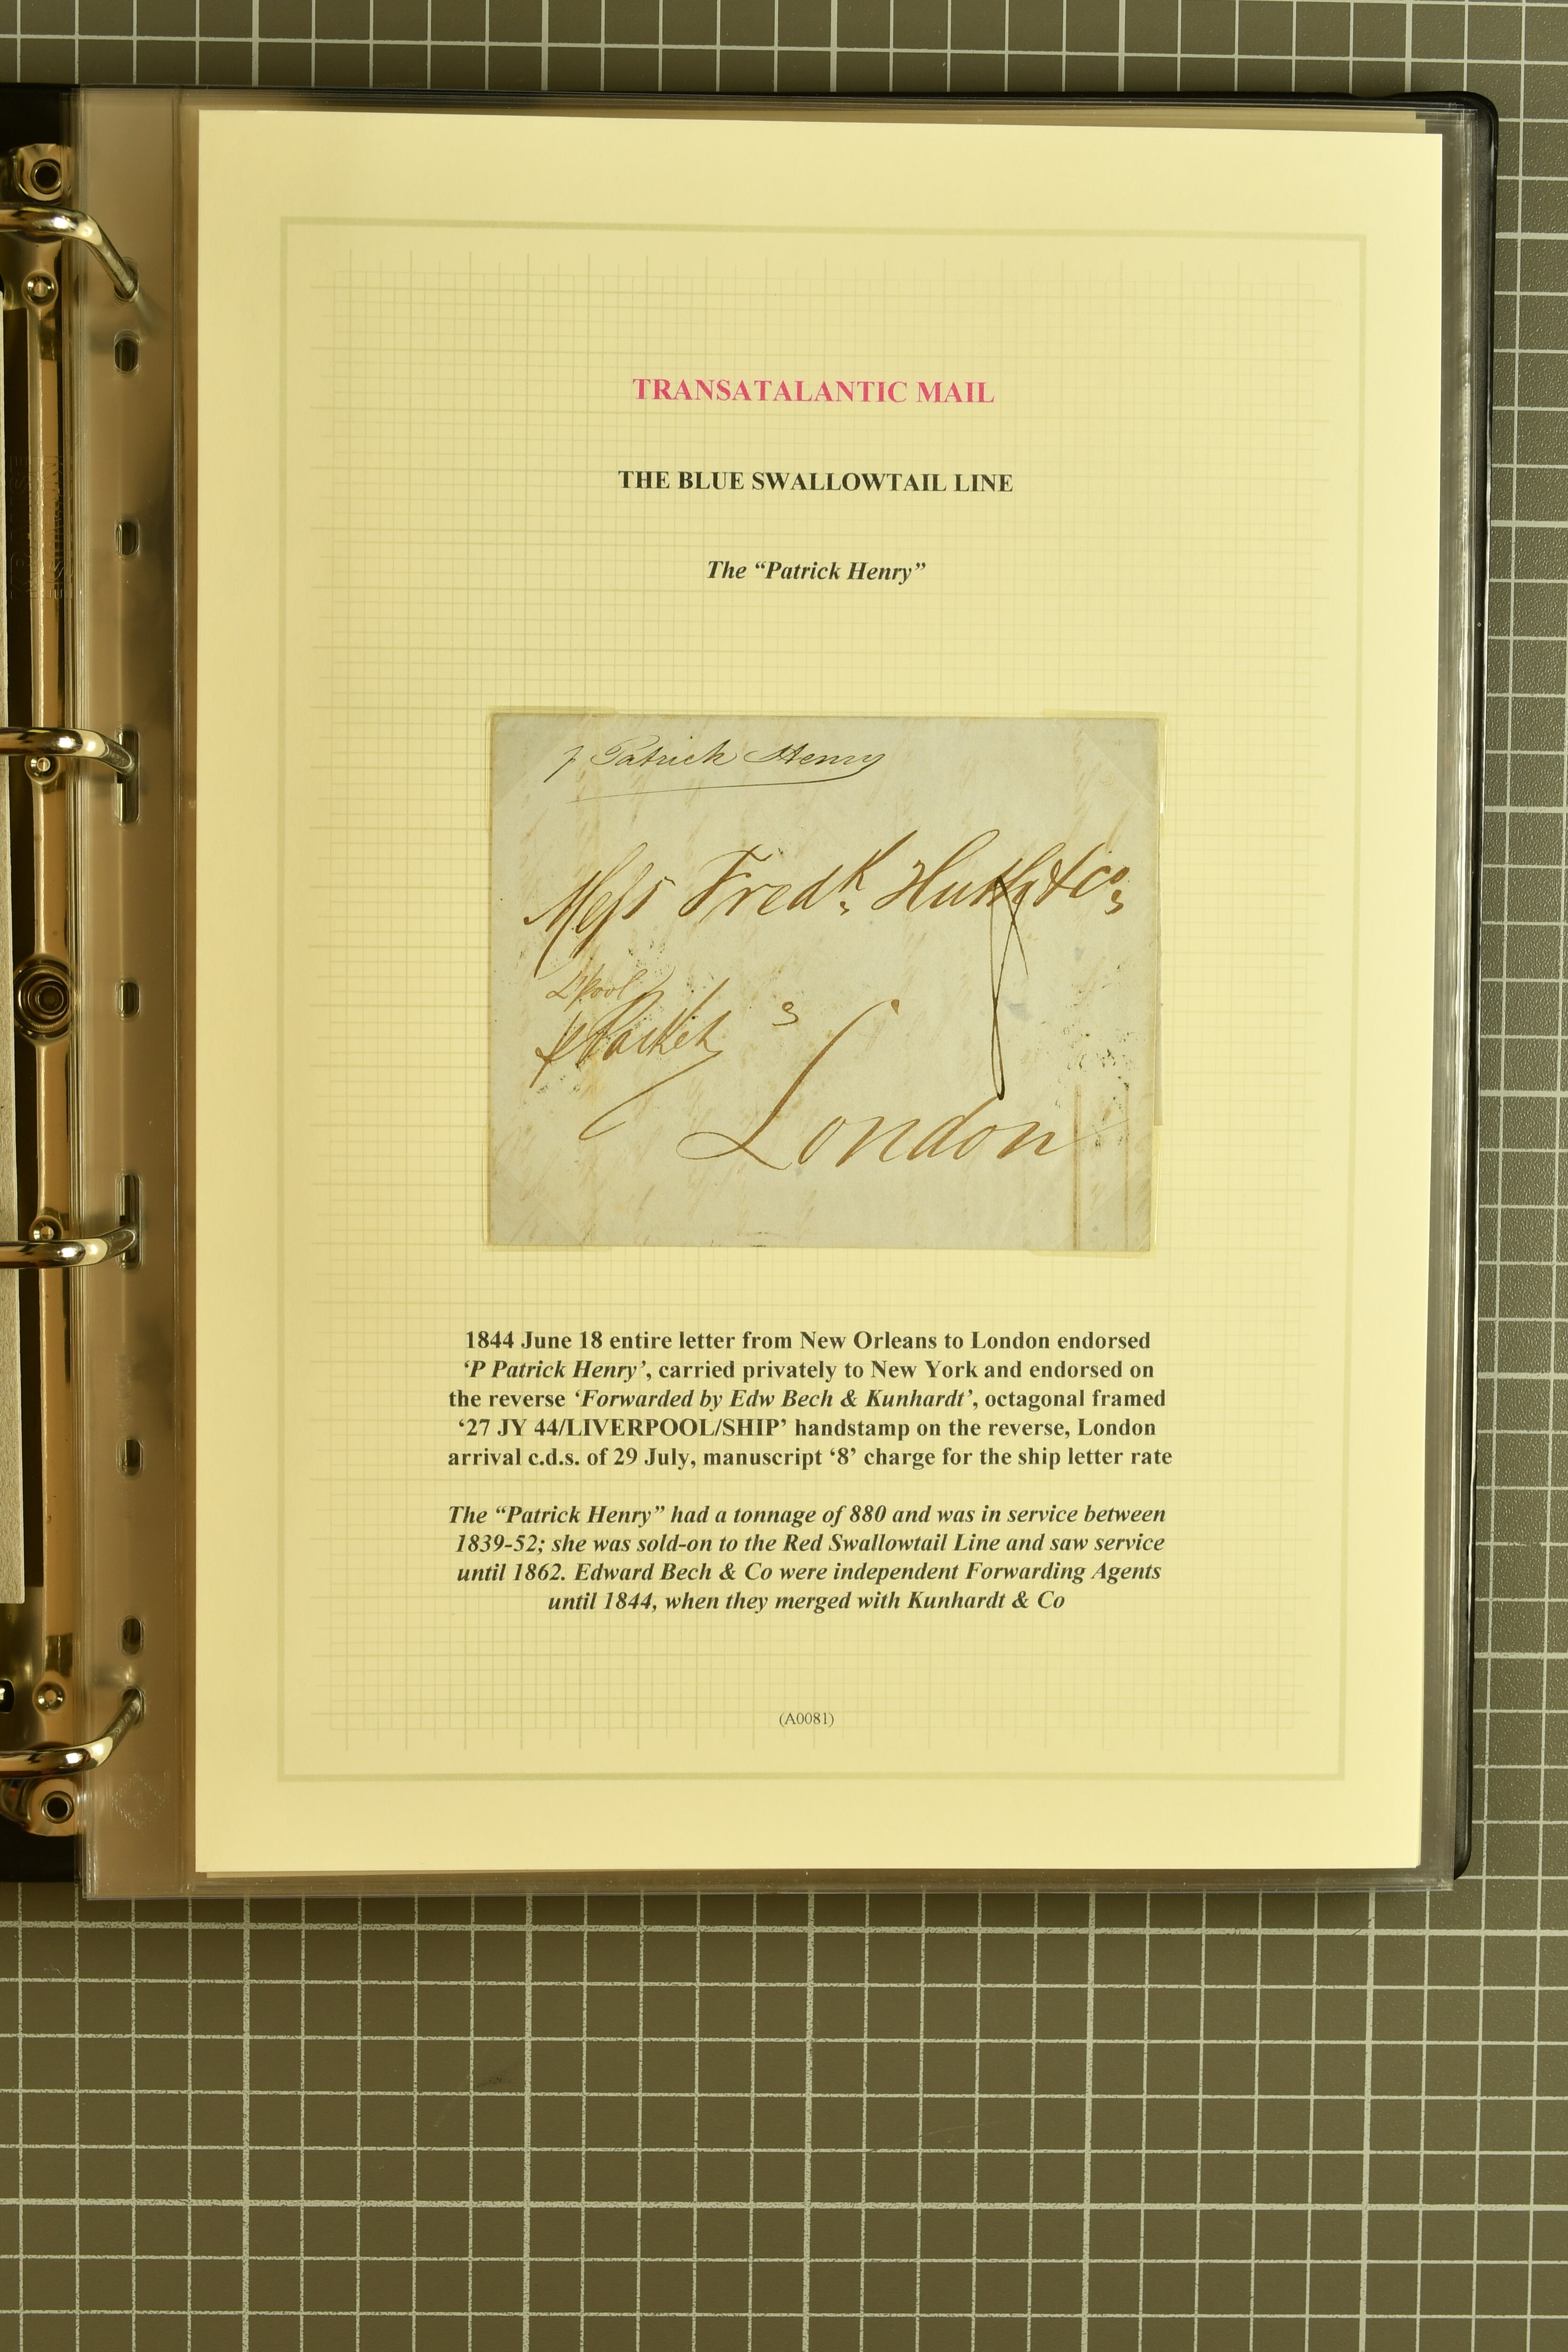 TRANSATALANTIC MAIL
THE BLUE SWALLOWTAIL LINE
The “Patrick Henry”
p Patrick Henry
Messrs Fredk. Huth & Co,
L'pool
p Packet
8
London
1844 June 18 entire letter from New Orleans to London endorsed
‘P Patrick Henry’, carried privately to New York and endorsed on
the reverse ‘Forwarded by Edw Bech & Kunhardt’, octagonal framed
‘27 JY 44/LIVERPOOL/SHIP’ handstamp on the reverse, London
arrival c.d.s. of 29 July, manuscript ‘8’ charge for the ship letter rate
The “Patrick Henry” had a tonnage of 880 and was in service between
1839-52; she was sold-on to the Red Swallowtail Line and saw service
until 1862. Edward Bech & Co were independent Forwarding Agents
until 1844, when they merged with Kunhardt & Co
(A0081)